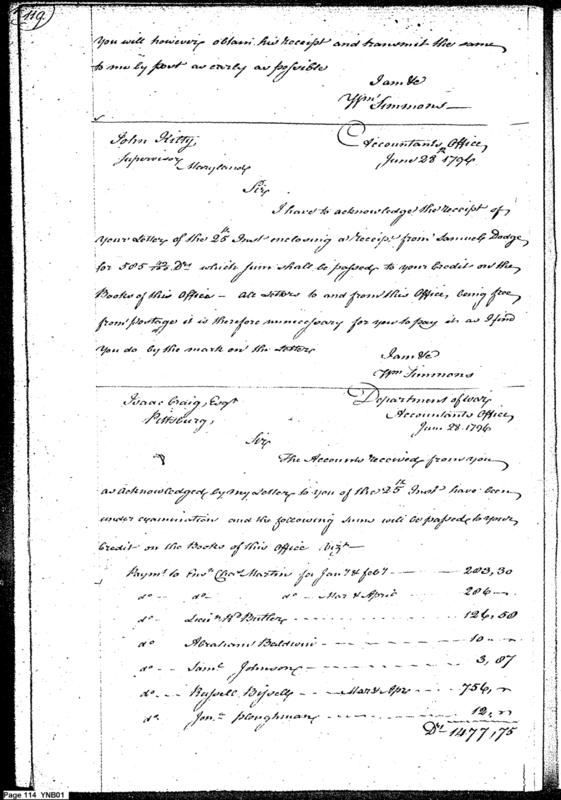 119.
You will however obtain his receipt and transmit the same
to me by post as early as possible
I am &c
Wm. Simmons
John Kitty,
Supervisor
Maryland
Accountants Office
June 28th 1796
Sir
I have to acknowledge the receipt of
your Letter of the 25th Inst enclosing a receipt from Samuel Dodge
for 585 Drs which sum shall be passed to your Credit on the
Books of this Office — All Letters to and from this Office, being free
from postage it is therefore unnecessary for you to pay it as I find
you do by the mark on the Letters
I am &c
Wm Simmons
Isaac Craig, Esqr
Pittsburg,
Department of war
Accountants Office
June 28. 1796
Sir
The Accounts received from you
as acknowledged by my Letter to you of the 25th Inst have been
under examination and the following sums will be passed to your
Credit on the Books of this Office Vizt
Paymt to Ensn Chas Martin for Jany & feby 283,30
do do do Mar & April 286
do Lieut Rd Butler 126,58
do Abraham Baldwin 10
do Saml Johnson 3,87
do Russell Bissell Mar & Apr 756,
do Jonn Ploughman 12,
Drs 1477,75
Page 114 YNB01